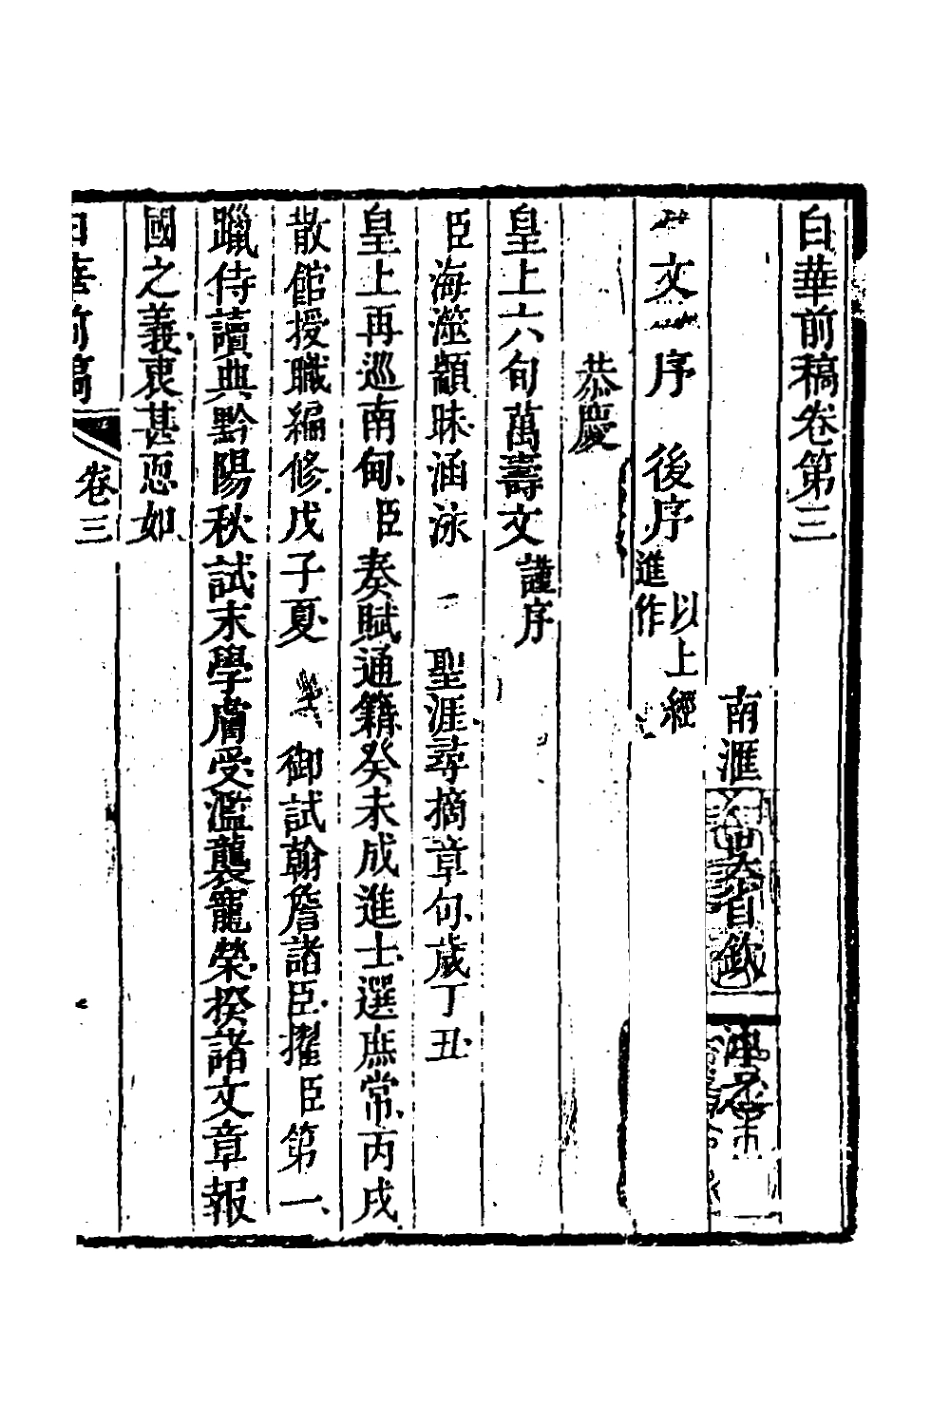 白華前稿卷第三
南滙吳省欽沖之
文 序 後序 以上經進作
恭慶
皇上六旬萬壽文 謹序
臣海澨顓眛涵泳 聖涯尋摘章句歲丁丑
皇上再巡南甸臣奏賦通籍癸未成進士選庶常丙戌
散館授職編修戊子夏 御試翰詹諸臣擢臣第一
躐侍讀典黔陽秋試末學膚受濫襲寵榮揆諸文章報
國之義衷甚恧如
白華前稿 卷三